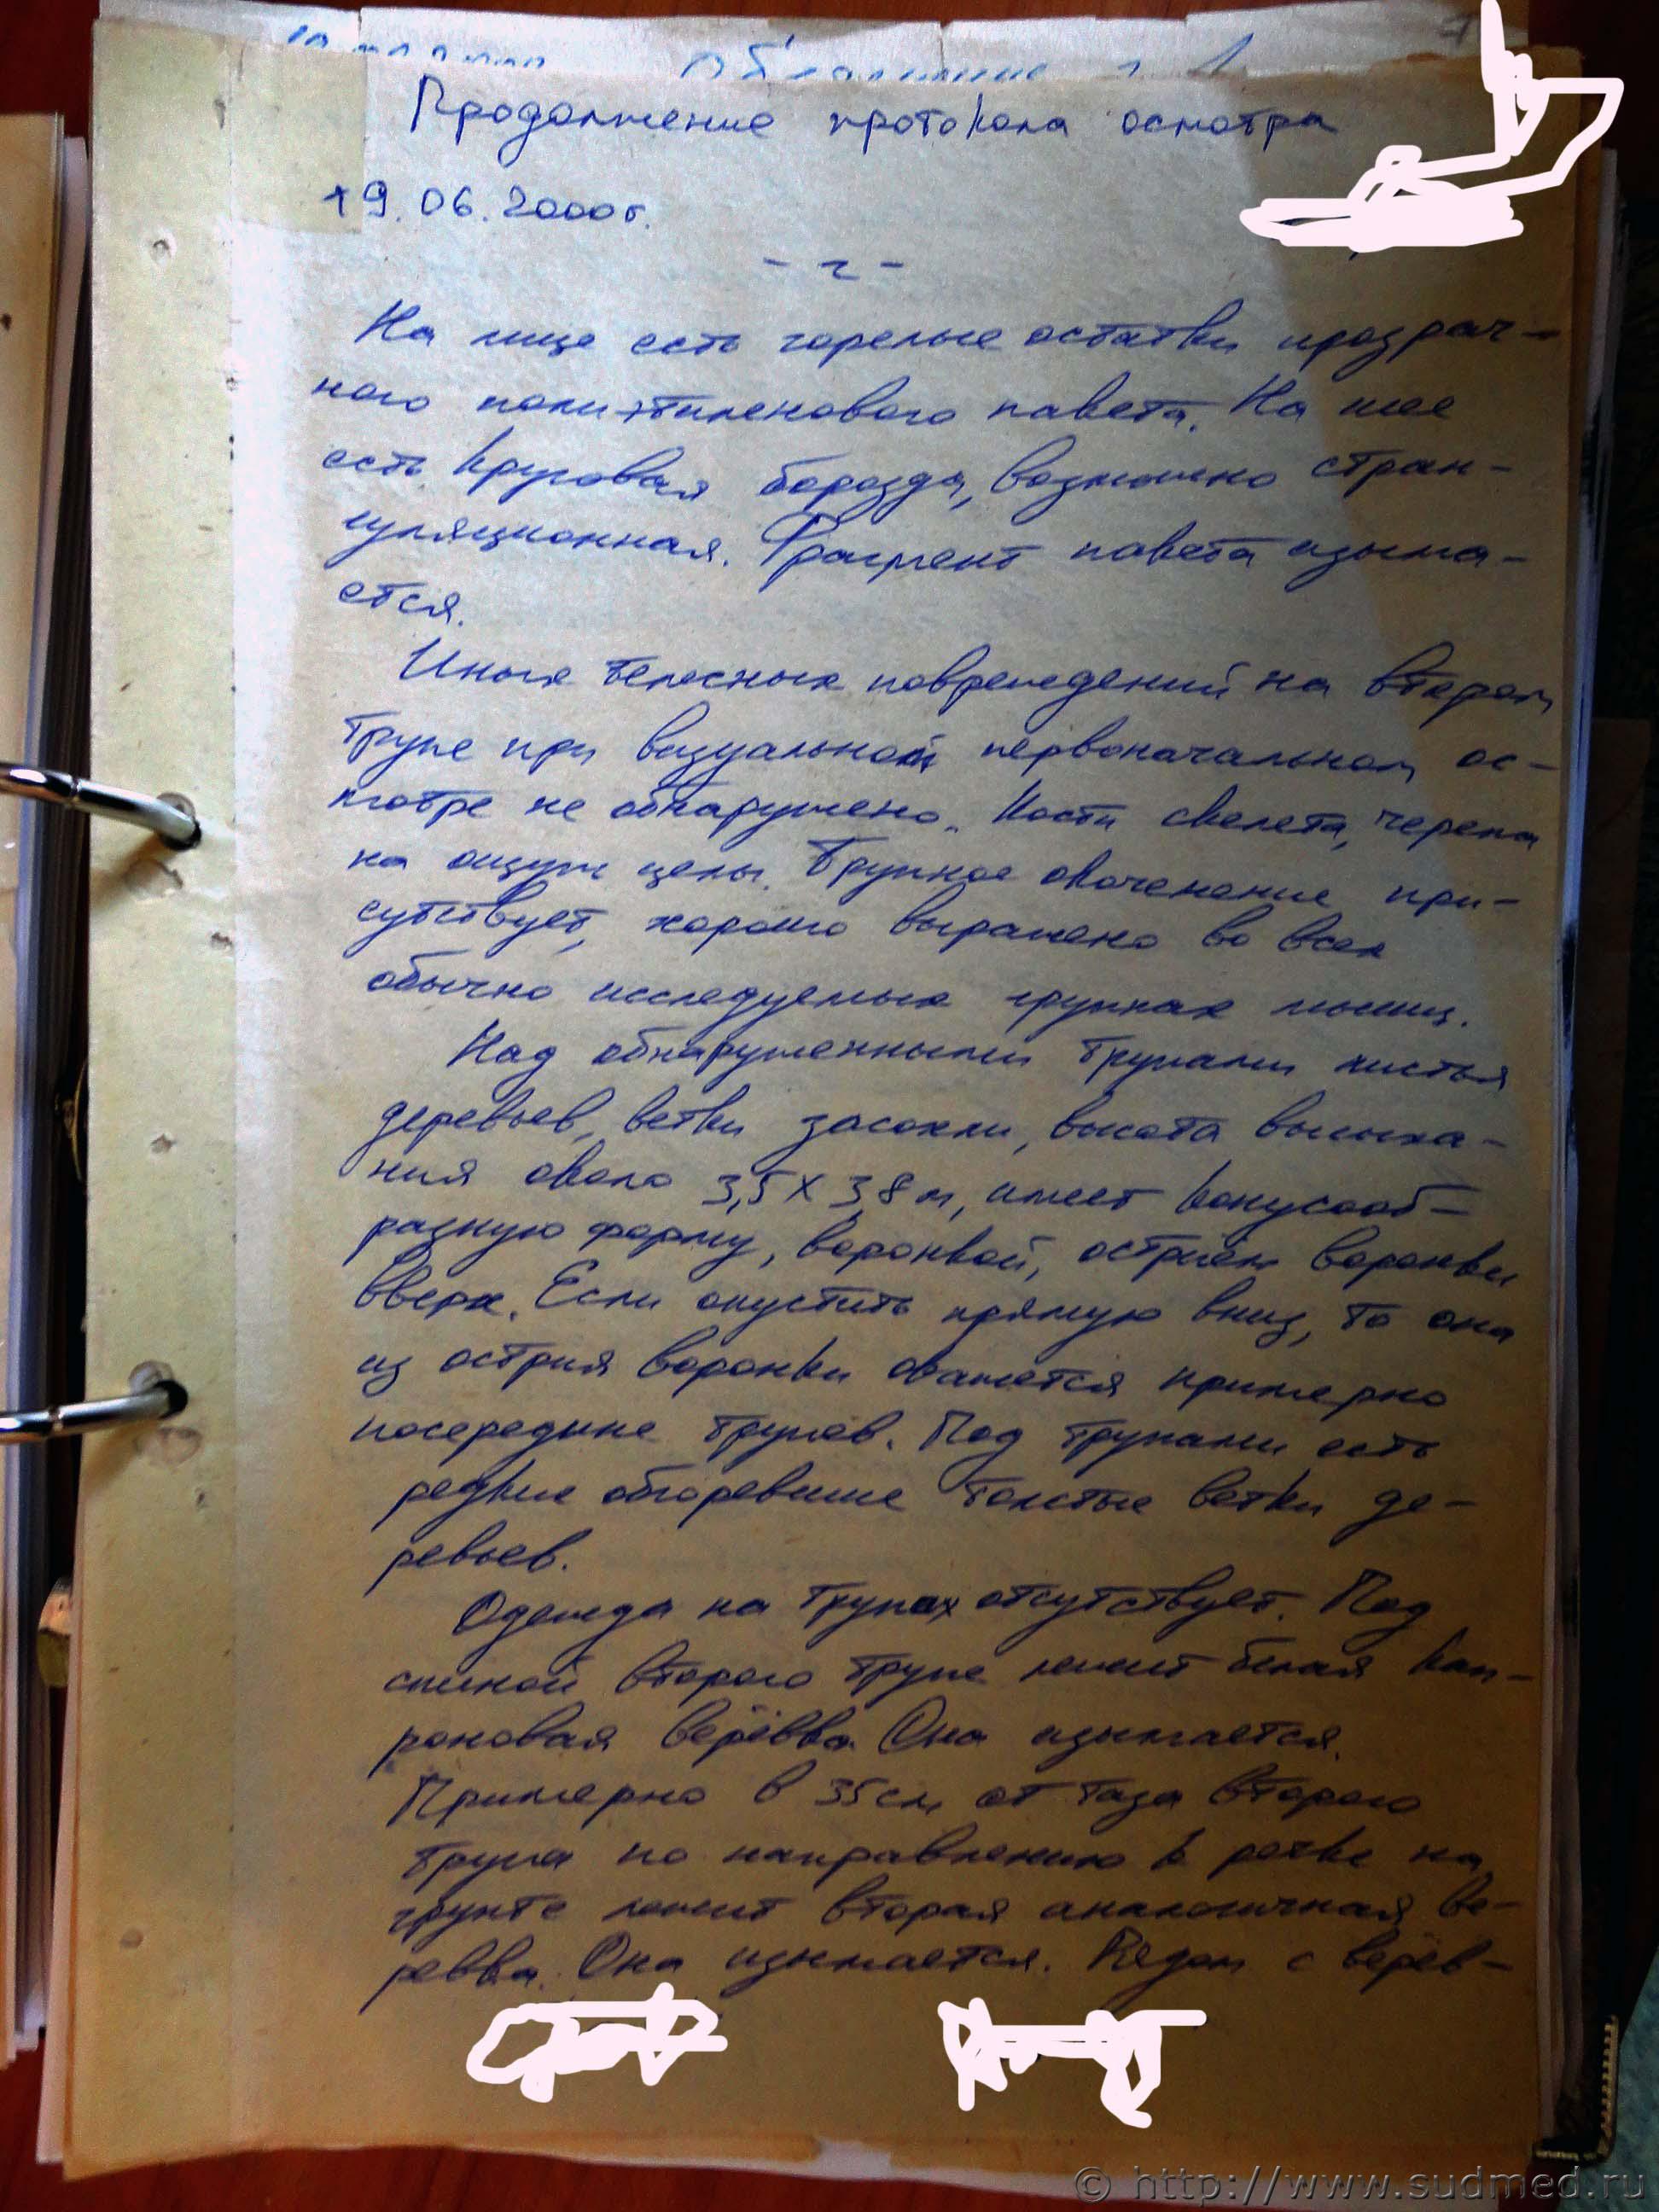 Продолжение протокола осмотра
19.06.2000г.
- 2 -
На лице есть горелые остатки прозрач-
ного полиэтиленового пакета. На шее
есть круговая борозда, возможно стран-
гуляционная. Фрагмент пакета изыма-
ется.
Иных телесных повреждений на втором
трупе при визуальном первоначальном ос-
мотре не обнаружено. Кости скелета, черепа
на ощупь целы. Трупное окоченение при-
сутствует, хорошо выражено во всех
обычно исследуемых группах мышц.
Над обнаруженными трупами листья
деревьев, ветки засохли, высота высыха-
ния около 3,5 х 3,8 м, имеет конусооб-
разную форму, воронкой, остриём воронки
вверх. Если опустить прямую вниз, то она
из острия воронки окажется примерно
посередине трупов. Под трупами есть
редкие обгоревшие толстые ветки де-
ревьев.
Одежда на трупах отсутствует. Под
спиной второго трупа лежит белая кап-
роновая верёвка. Она изымается.
Примерно в 35 см от таза второго
трупа по направлению к речке на
грунте лежит вторая аналогичная ве-
ревка. Она изымается. Рядом с верёв-
© http://www.sudmed.ru